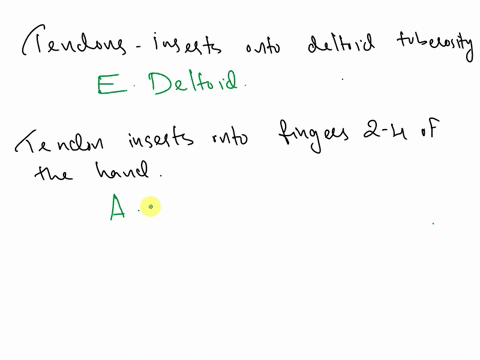 Tendons - inserts onto deltoid tuberosity
E. Deltoid.
Tendon inserts into fingers 2-4 of
the hand.
A.